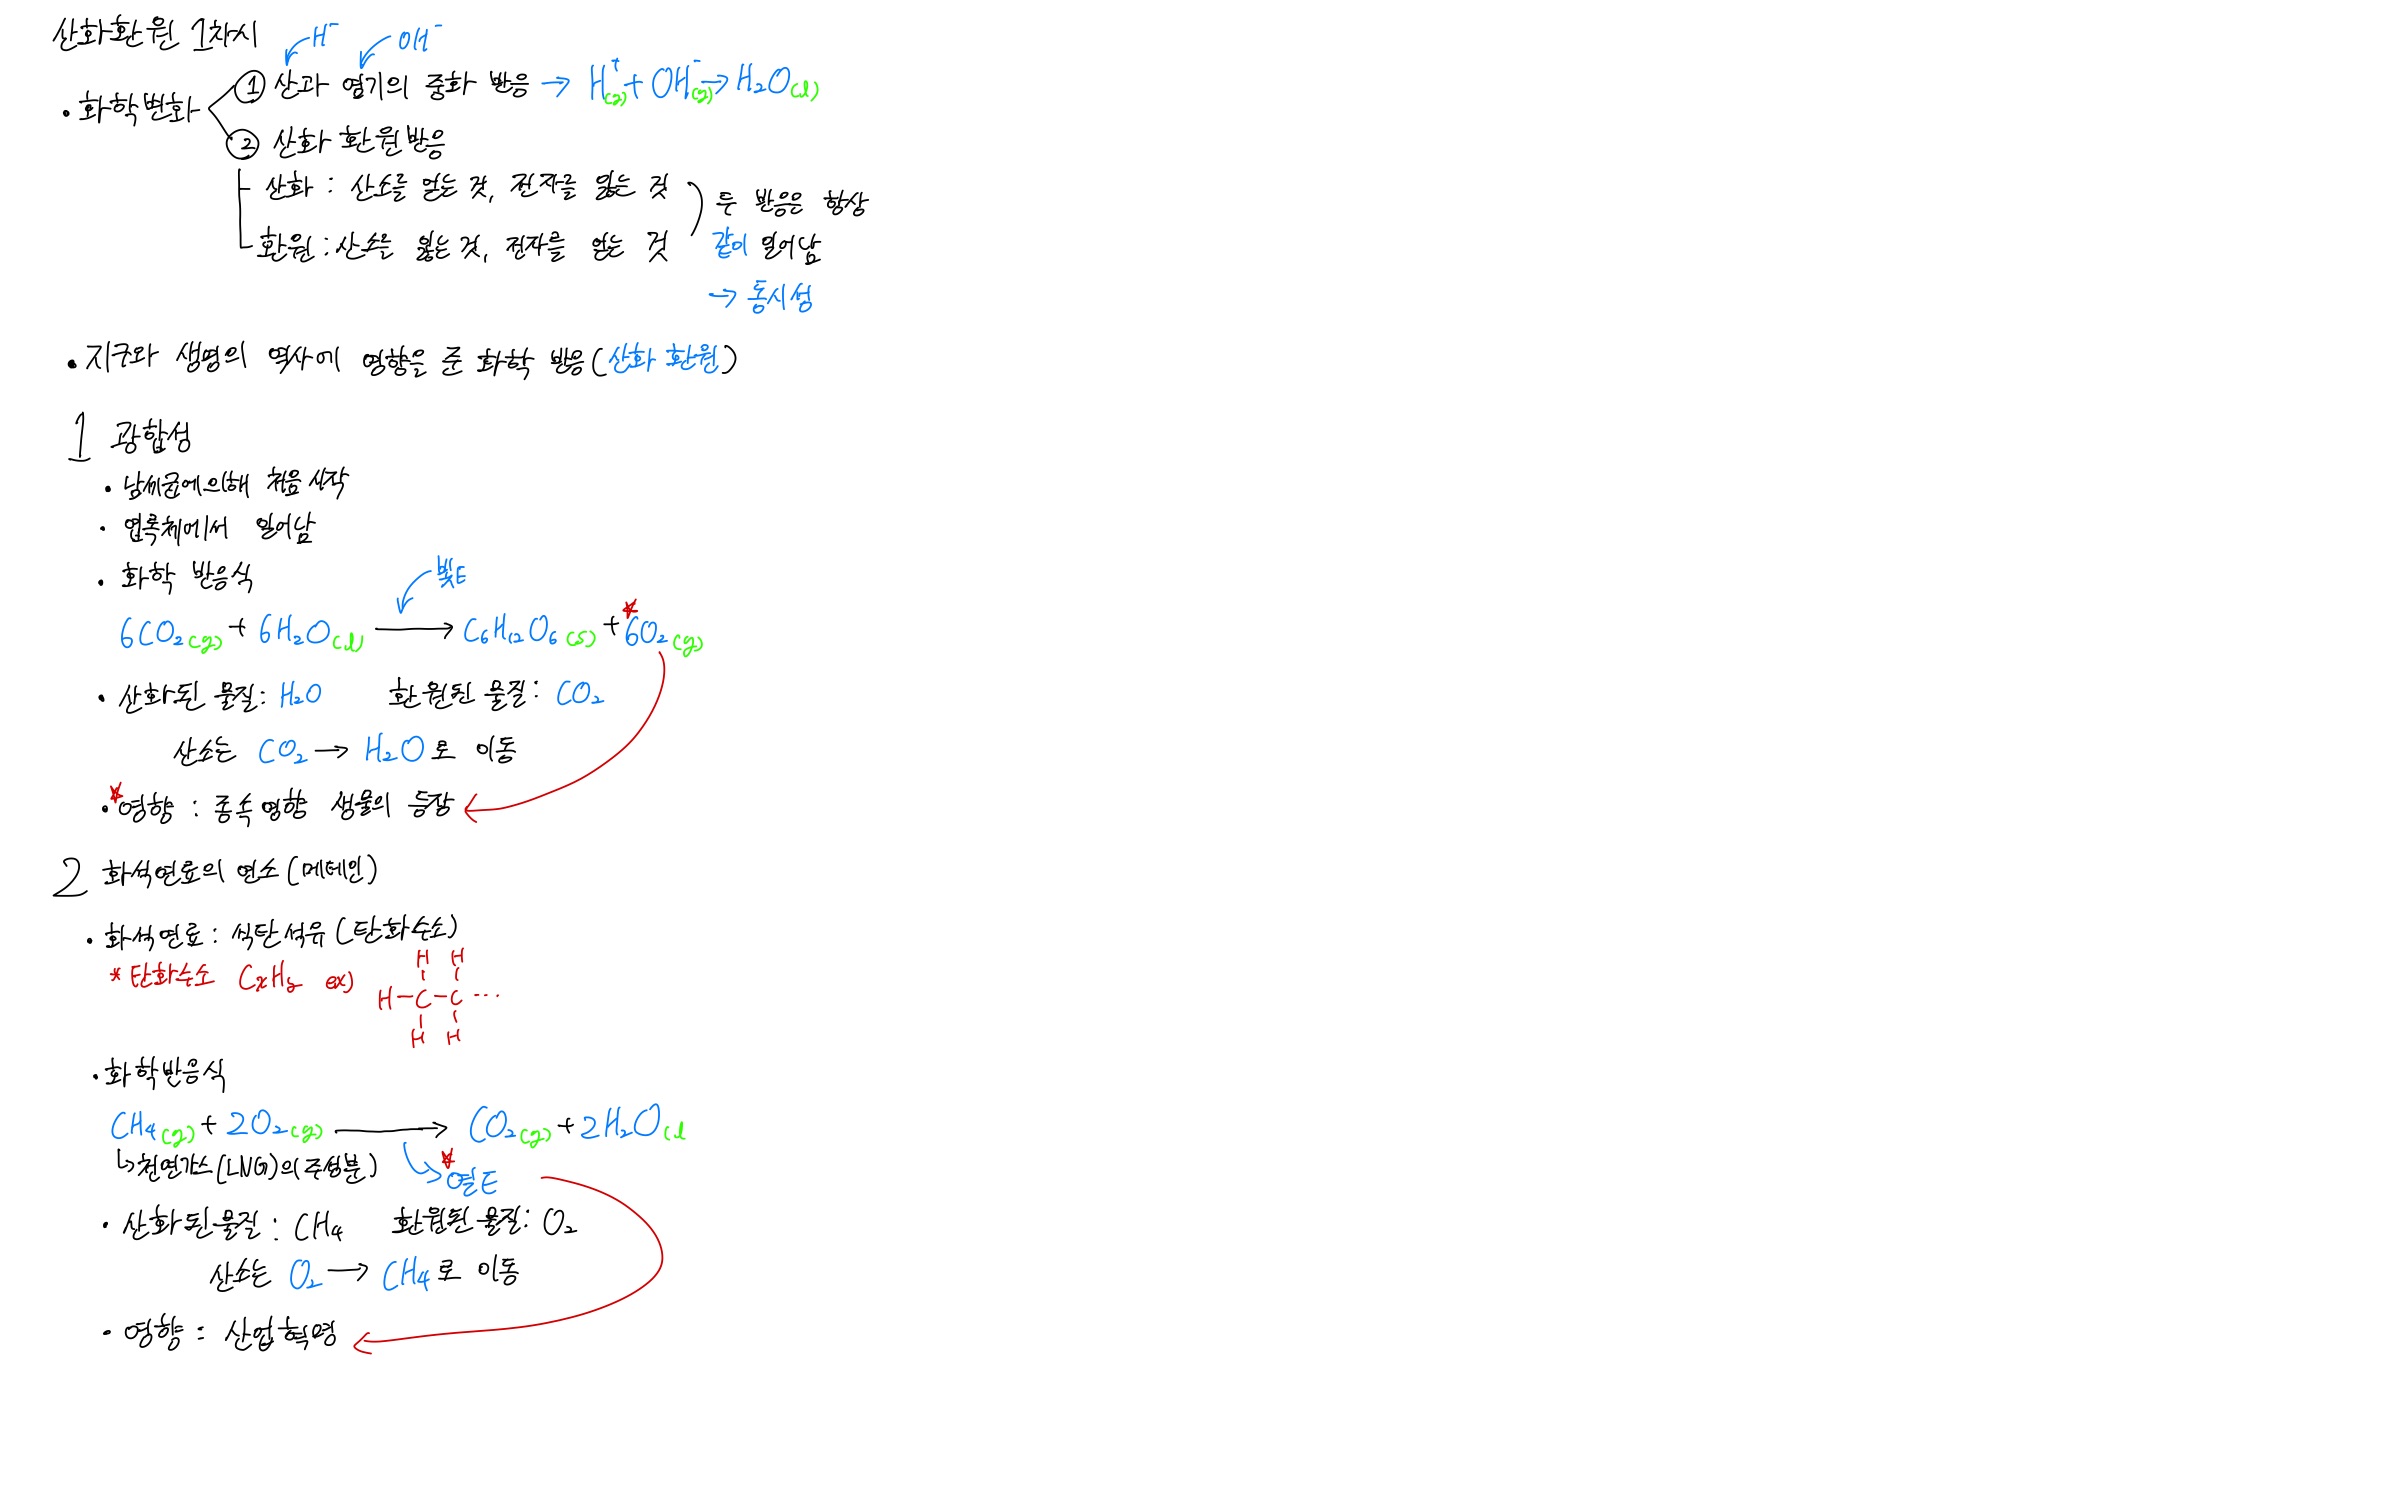 산화환원 1차시
H⁻ OH⁻
• 화학변화
① 산과 염기의 중화 반응 → H⁺(g) + OH⁻(g) → H₂O(l)
② 산화 환원반응
산화 : 산소를 얻는 것, 전자를 잃는 것
환원 : 산소를 잃는 것, 전자를 얻는 것
두 반응은 항상
같이 일어남
→ 동시성
• 지구와 생명의 역사에 영향을 준 화학 반응(산화 환원)
1 광합성
• 남세균에의해 처음 시작
• 엽록체에서 일어남
• 화학 반응식
빛E
6CO₂(g) + 6H₂O(l) → C₆H₁₂O₆(s) + 6O₂(g)
• 산화된 물질: H₂O 환원된 물질: CO₂
산소는 CO₂ → H₂O로 이동
• 영향 : 종속영향 생물의 등장
2 화석연료의 연소(메테인)
• 화석연료 : 석탄석유(탄화수소)
* 탄화수소 CxHy ex)
H H
H-C-C-...
H H
• 화학반응식
CH₄(g) + 2O₂(g) → CO₂(g) + 2H₂O(l
↳천연가스(LNG)의주성분)
열E
• 산화된물질 : CH₄ 환원된물질: O₂
산소는 O₂ → CH₄로 이동
• 영향 : 산업혁명